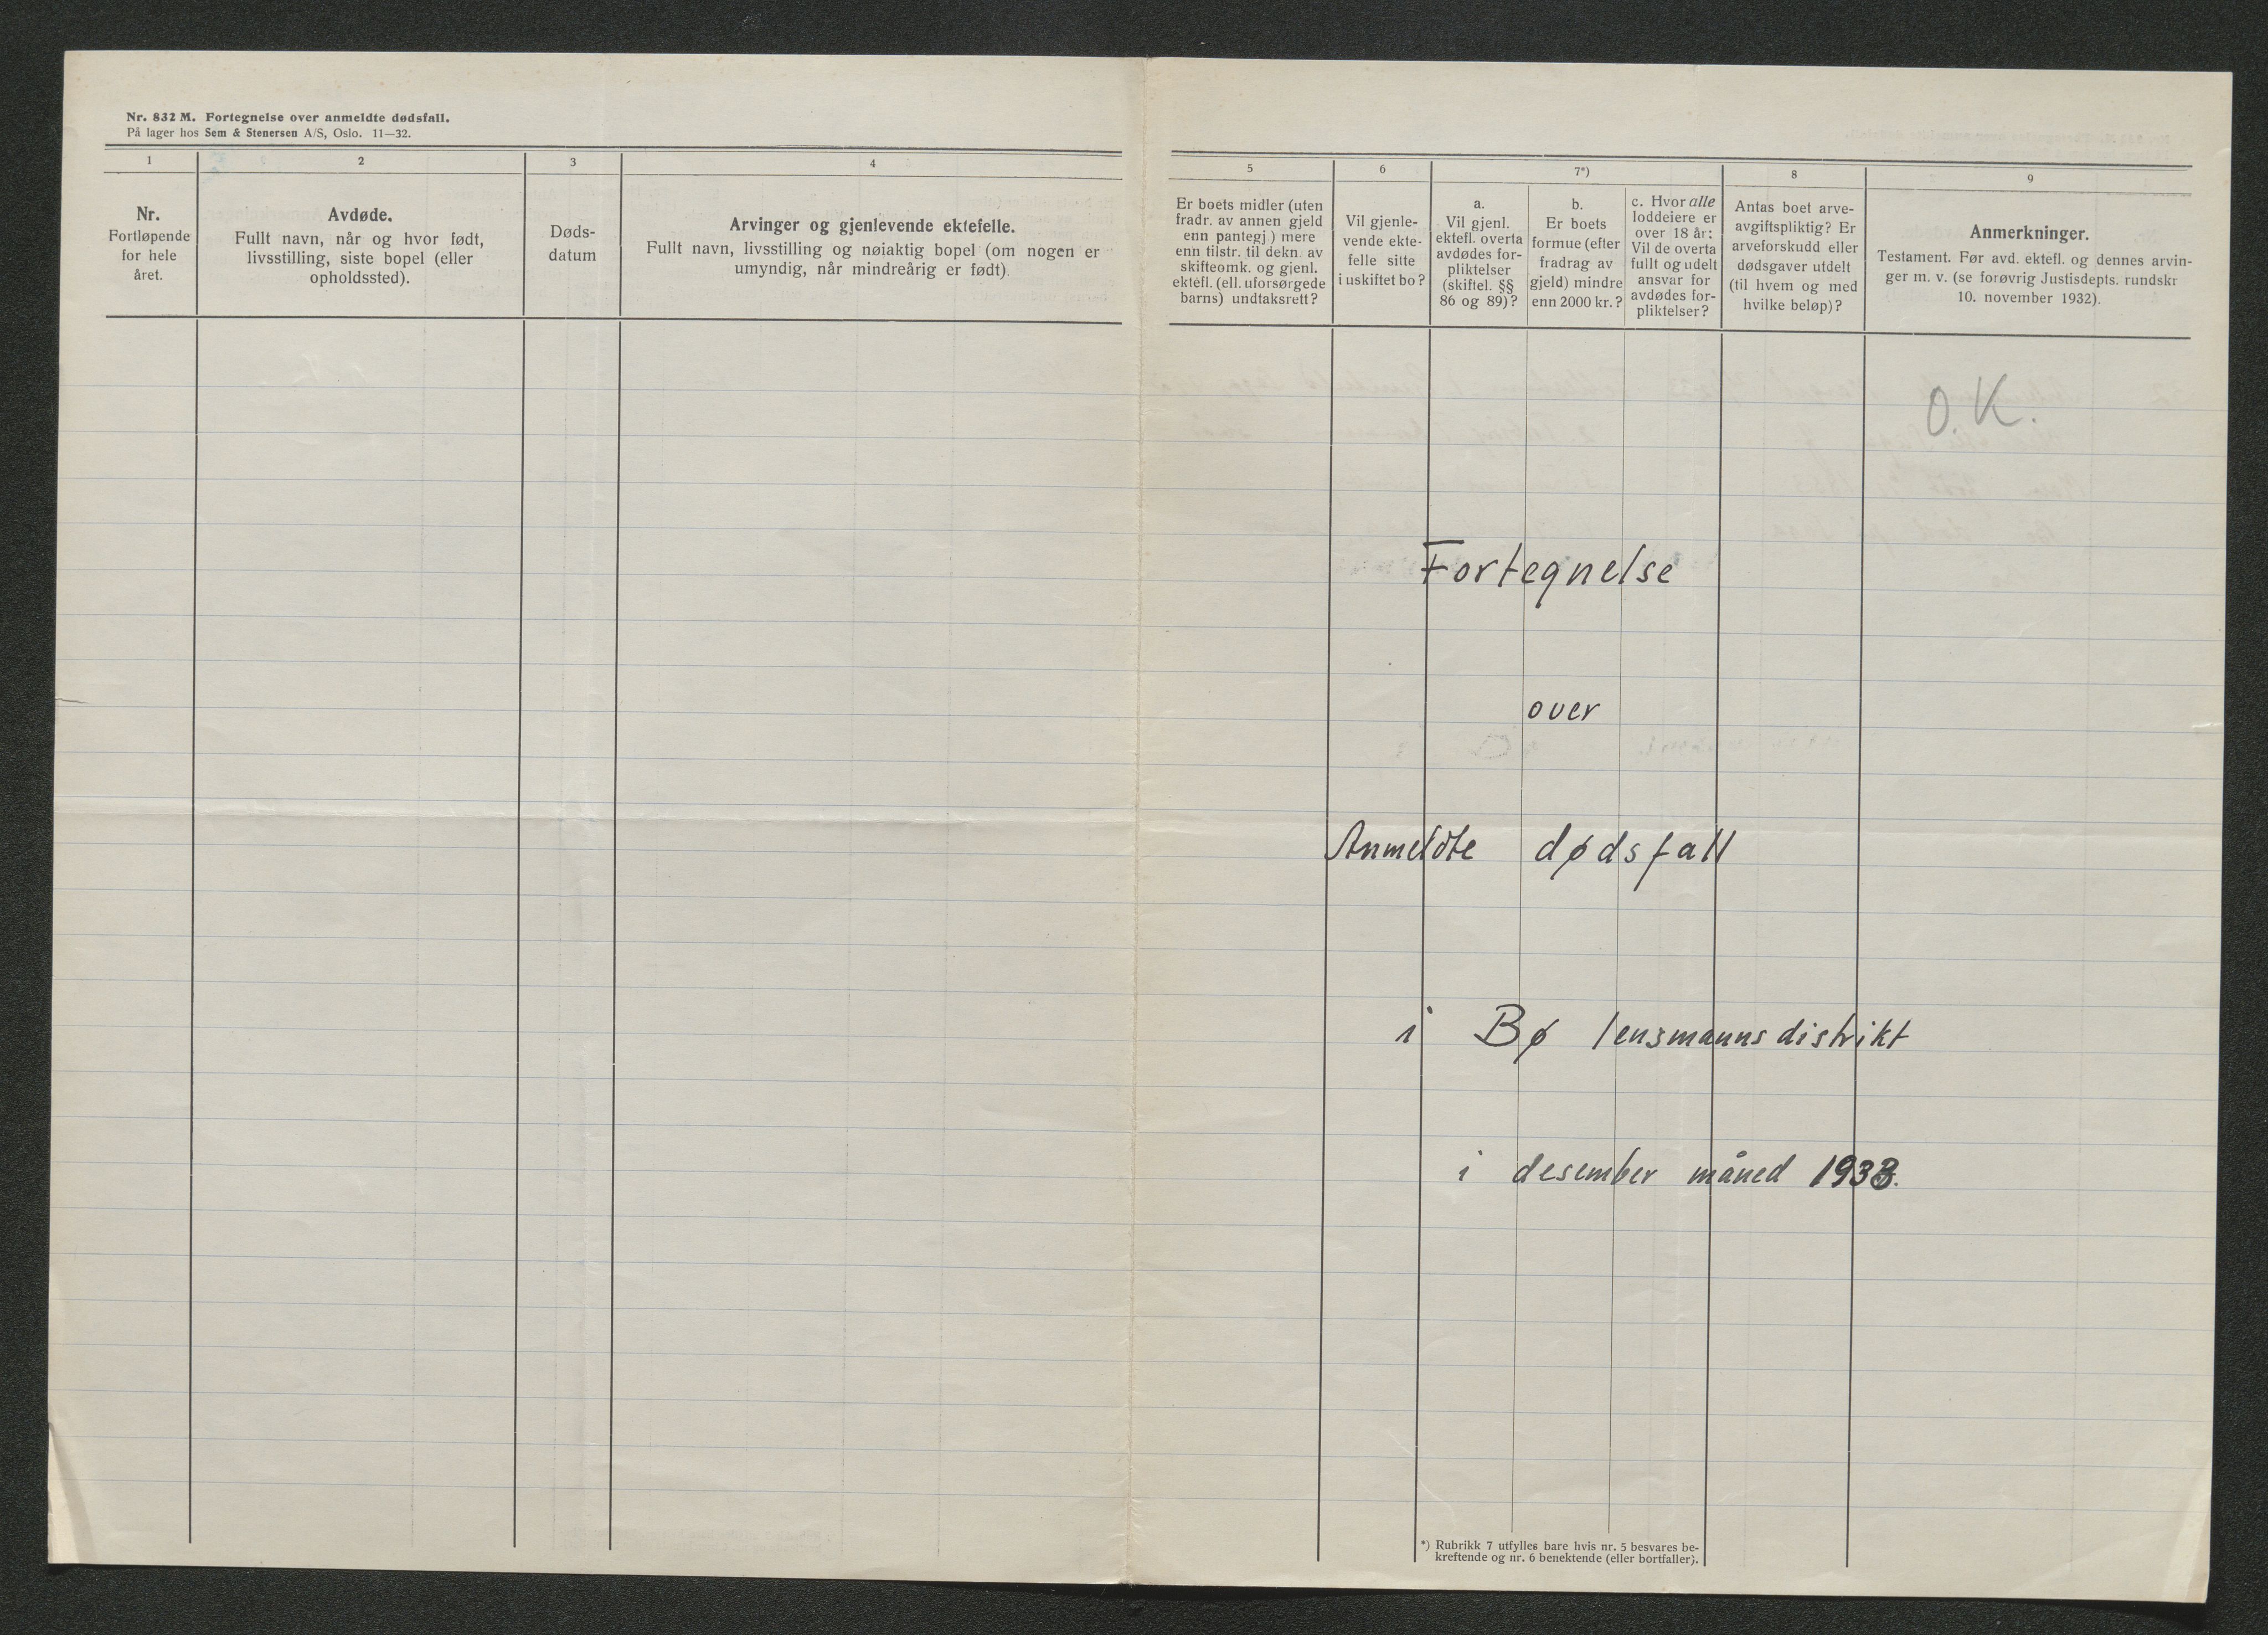 Nr. 832 M. Fortegnelse over anmeldte dødsfall.
På lager hos Sem & Stenersen A/S, Oslo. 11—32.
1
Nr.
Fortløpende
for hele
året.
2
Avdøde.
Fullt navn, når og hvor født,
livsstilling, siste bopel (eller
opholdssted).
3
Døds-
datum
4
Arvinger og gjenlevende ektefelle.
Fullt navn, livsstilling og nøiaktig bopel (om nogen er
umyndig, når mindreårig er født).
5
Er boets midler (uten
fradr. av annen gjeld
enn pantegj) mere
enn tilstr. til dekn. av
skifteomk. og gjenl.
ektefl. (ell. uforsørgede
barns) undtaksrett?
6
Vil gjenle-
vende ekte-
felle sitte
i uskiftet bo?
7*)
a.
Vil gjenl.
ektefl. overta
avdødes for-
pliktelser
(skiftel. §§
86 og 89)?
b.
Er boets
formue (efter
fradrag av
gjeld) mindre
enn 2000 kr.?
c. Hvor alle
loddeiere er
over 18 år:
Vil de overta
fullt og udelt
ansvar for
avdødes for-
pliktelser?
8
Antas boet arve-
avgiftspliktig? Er
arveforskudd eller
dødsgaver utdelt
(til hvem og med
hvilke beløp)?
9
Anmerkninger.
Testament. Før avd. ektefl. og dennes arvin-
ger m. v. (se forøvrig Justisdepts. rundskr
10. november 1932).
O.K.
Fortegnelse
over
Anmeldte dødsfall
i Bø lensmannsdistrikt
i desember måned 1933.
*) Rubrikk 7 utfylles bare hvis nr. 5 besvares be-
kreftende og nr. 6 benektende (eller bortfaller).